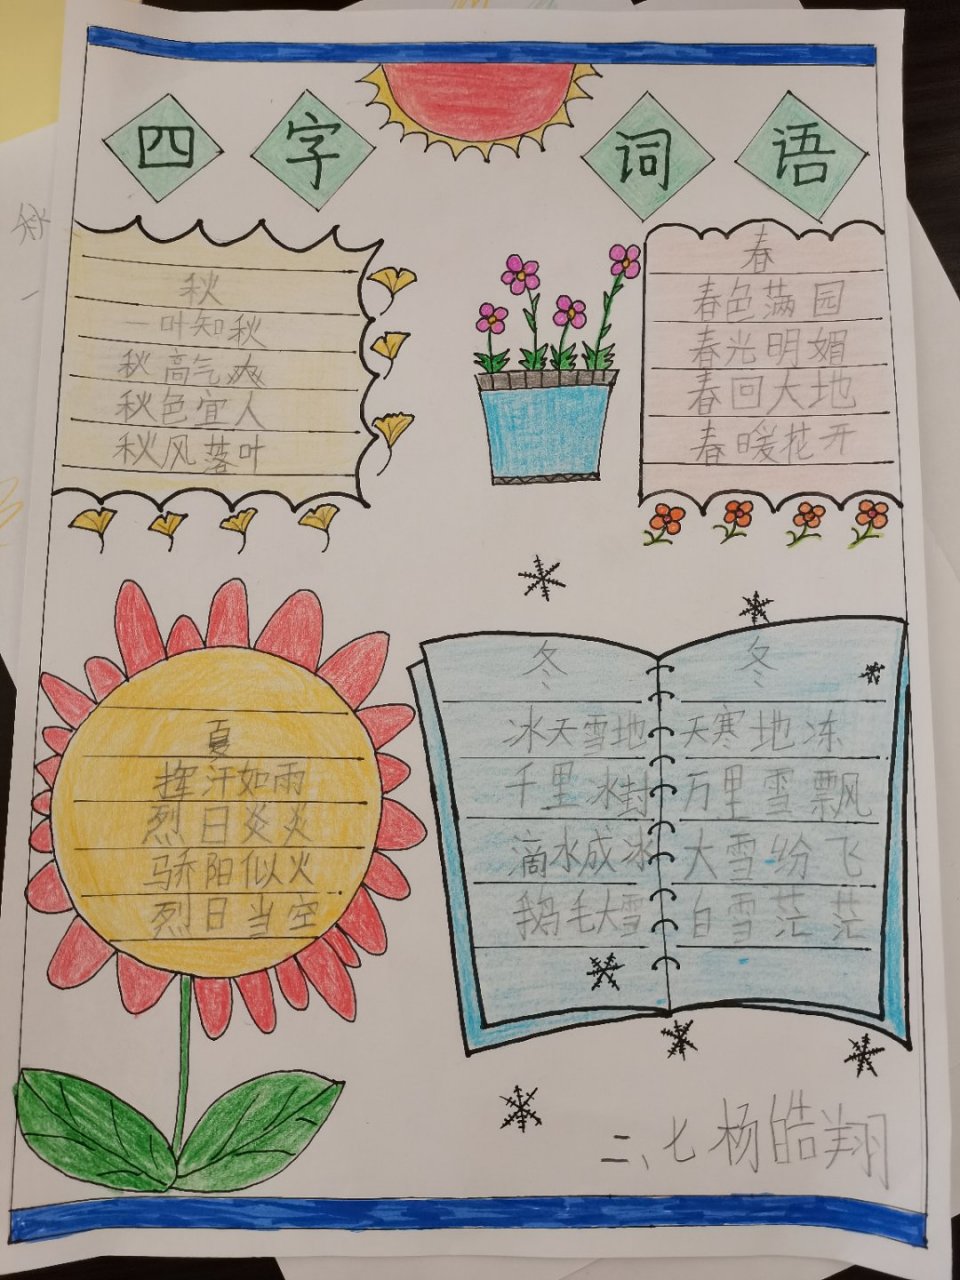 四字词语
秋
一叶知秋
秋高气爽
秋色宜人
秋风落叶
春
春色满园
春光明媚
春回大地
春暖花开
夏
挥汗如雨
烈日炎炎
骄阳似火
烈日当空
冬
冰天雪地
千里冰封
滴水成冰
鹅毛大雪
冬
天寒地冻
万里雪飘
大雪纷飞
白雪茫茫
二、七杨皓翔